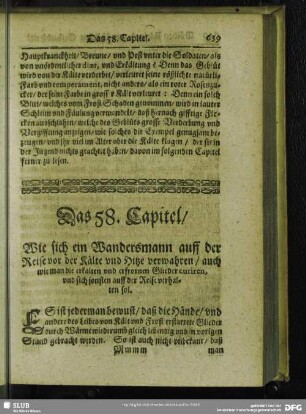 Das 58. Capitel. 639
Hauptkranckheit/ Breune/ vnd Pest vnter die Soldaten/ als
von vnordentlicher diæt, vnd Erkältung: Denn das Geblüt
wird von der Kälte verderbet/ verleuret seine röhtliche natürli.
Farb vnd temperament, nicht anders/ als ein roter Rosenzu-
cker/ der seine Farbe in gross r Kält verleuret: Denn ein solch
Blut/ welches vom Frost Schaden genommen/ wird in lauter
Schleim vnd Fäulung verwandelt/ daß hernach
ckenauß welche des Geblüts grosse Verderbung vnd
Vergifftung anzeigen/ wie solches die Exempel genugsam be-
zeugen/ vnd ihr viel im Alter über die Kälte klagen/ der sie in
der Jugend nichts geachtet haben/ davon im folgenden Capitel
ferner zu lesen.
Das 58. Capitel/
Wie sich ein Wandersmann auff der
Reise vor der Kälte vnd Hitze verwahren/ auch
wie man die erkalten vnd erfrornen Glieder curiren,
vnd sich sonsten auff der Reise verhal-
ten sol.
ES ist jederman bewust/ daß die Hände/ vnd
andere des Leibes von Kält vnd Frost erstarrete Glieder
durch Wärme wiederumb gleich lebendig vnd in vorigen
Stand gebracht werden. So ist auch nicht vnbekant/ daß
M m m m man